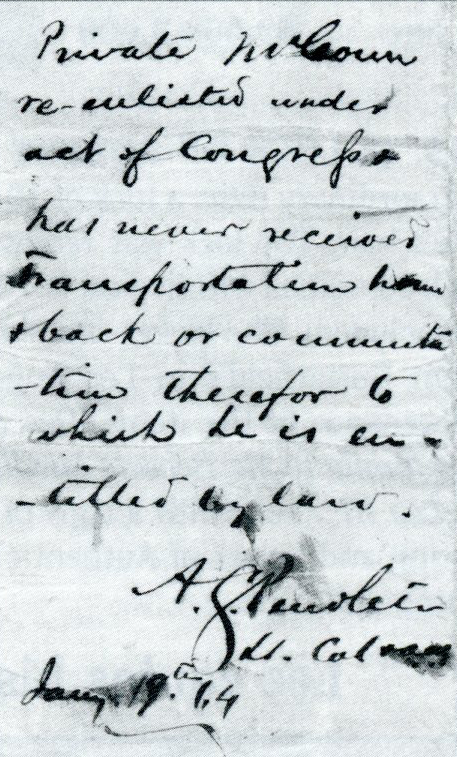 Private McCown
re-enlisted under
act of Congress &
has never received
transportation home
& back or commuta
-tion therefor to
which he is en-
-titled by law.
A. S. Pendleton
Lt. Col
Jany 19th 64